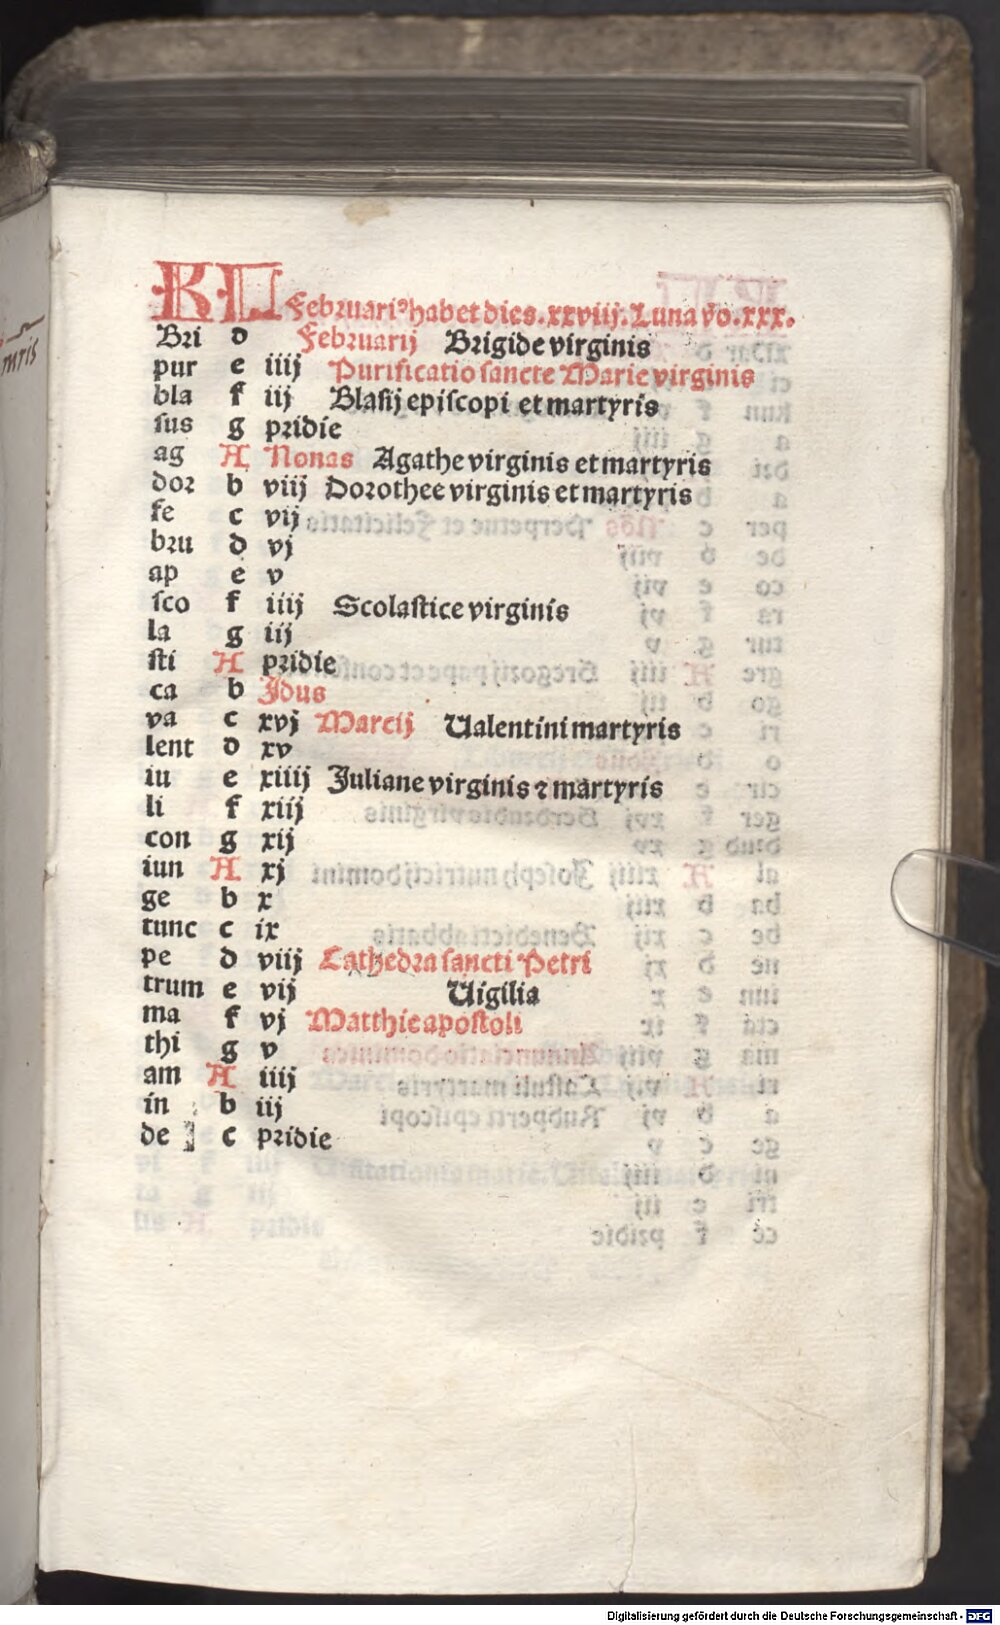 mris
KL Februariꝰ habet dies. xxviij. Luna v̊o. xxx.
Bri d Februarij Brigide virginis
pur e iiij Purificatio sancte Marie virginis
bla f iij Blasij episcopi et martyris
sus g pridie
ag A Nonas Agathe virginis et martyris
dor b viij Dorothee virginis et martyris
fe c vij
bru d vj
ap e v
sco f iiij Scolastice virginis
la g iij
sti A pridie
ca b Jdus
va c xvj Marcij Ualentini martyris
lent d xv
iu e xiiij Juliane virginis ⁊ martyris
li f xiij
con g xij
iun A xj
ge b x
tunc c ix
pe d viij Cathedra sancti Petri
trum e vij Uigilia
ma f vj Matthie apostoli
thi g v
am A iiij
in b iij
de c pridie
Digitalisierung gefördert durch die Deutsche Forschungsgemeinschaft - DFG